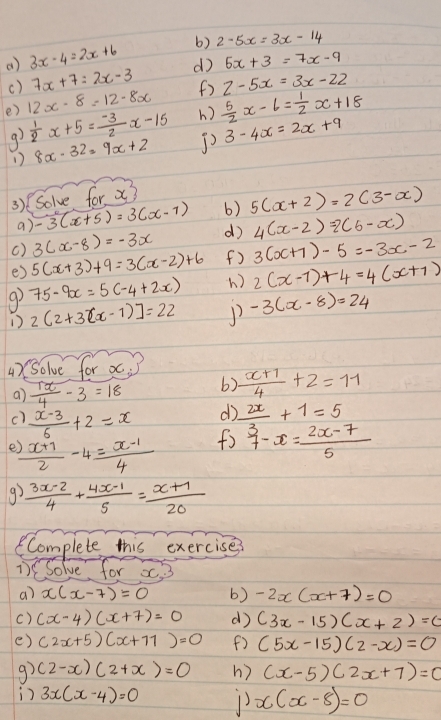 a) 3x - 4 = 2x + 6 b) 2 - 5x = 3x - 14
c) 7x + 7 = 2x - 3 d) 5x + 3 = 7x - 9
e) 12x - 8 = 12 - 8x f) 2 - 5x = 3x - 22
g) 1/2 x + 5 = -3/2 x - 15 h) 5/2 x - 6 = 1/2 x + 18
i) 8x - 32 = 9x + 2 j) 3 - 4x = 2x + 9
3) Solve for x
a) -3(x+5) = 3(x-1) b) 5(x+2) = 2(3-x)
c) 3(x-8) = -3x d) 4(x-2) = 2(6-x)
e) 5(x+3)+9 = 3(x-2)+6 f) 3(x+1) - 5 = -3x - 2
g) 75 - 9x = 5(-4+2x) h) 2(x-1)+4 = 4(x+1)
i) 2(2+3[x-1)] = 22 j) -3(x-8) = 24
4) Solve for x.
a) 1x/4 - 3 = 18 b) x+1/4 + 2 = 11
c) x-3/6 + 2 = x d) 2x/3 + 1 = 5
e) x+1/2 - 4 = x-1/4 f) 7 - x = 2x-7/5
g) 3x-2/4 + 4x-1/5 = x+1/20
Complete this exercise
1) Solve for x.
a) x(x-7) = 0 b) -2x(x+7) = 0
c) (x-4)(x+7) = 0 d) (3x-15)(x+2) =
e) (2x+5)(x+11) = 0 f) (5x-15)(2-x) = 0
g) (2-x)(2+x) = 0 h) (x-5)(2x+7) =
i) 3x(x-4) = 0 j) x(x-8) = 0